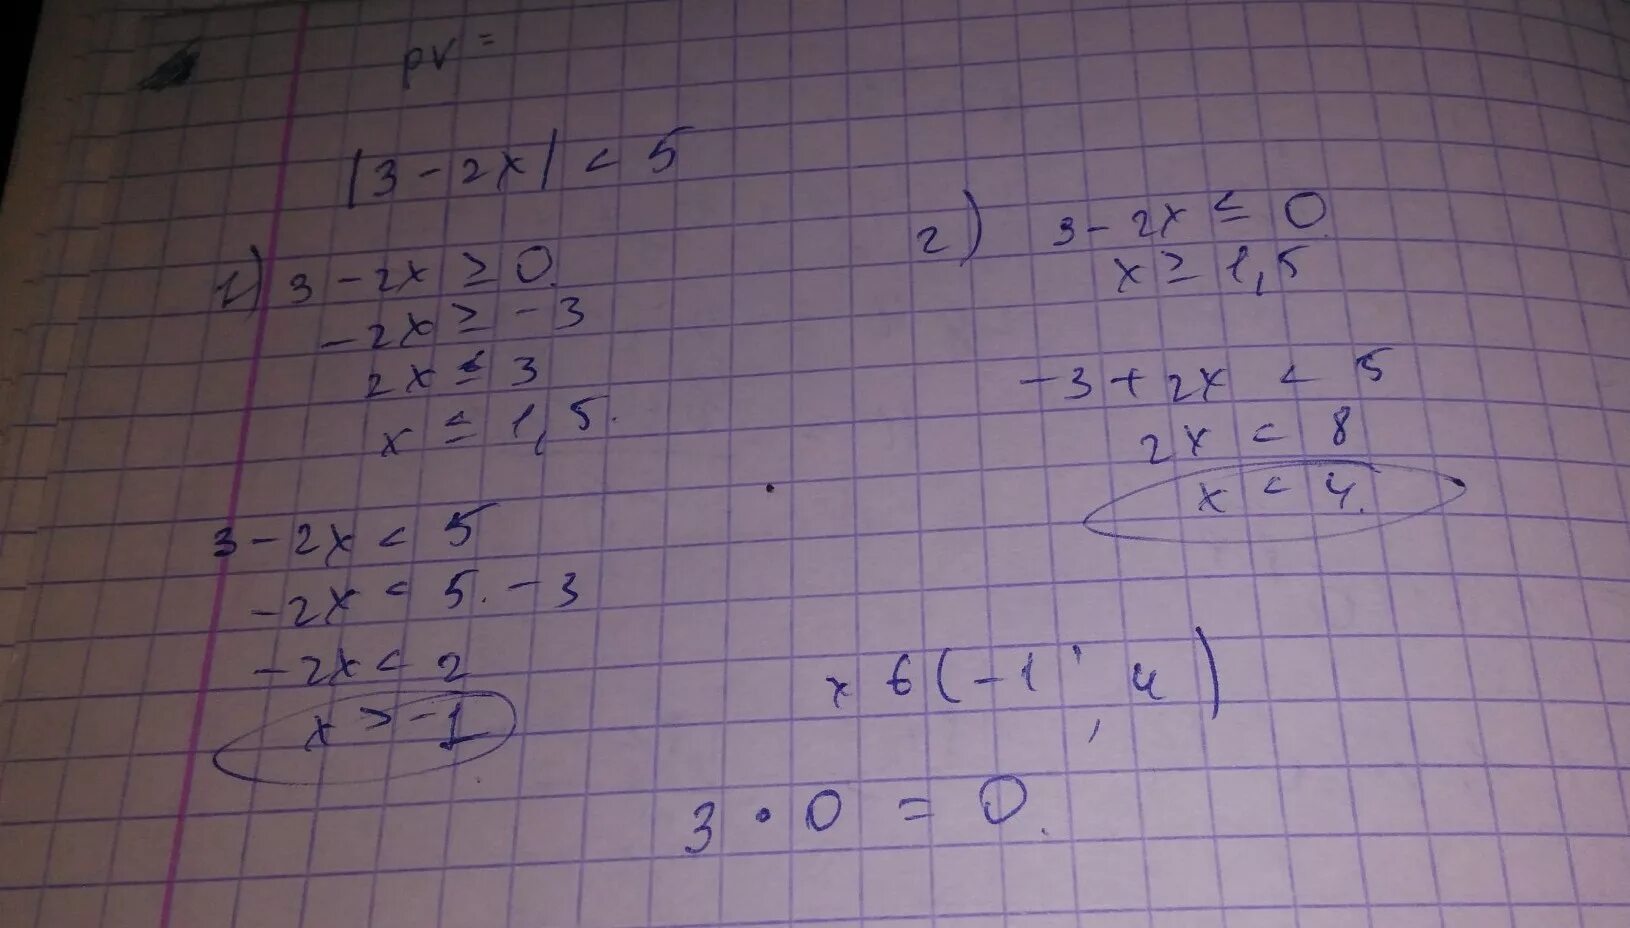 pv =
|3 - 2x| < 5
1) 3 - 2x ≥ 0
-2x ≥ -3
2x ≤ 3
x ≤ 1,5.
3 - 2x < 5
-2x < 5. - 3
-2x < 2
x > -1
2) 3 - 2x ≤ 0
x ≥ 1,5
-3 + 2x < 5
2x < 8
x < 4.
x є (-1 ; 4)
3 · 0 = 0.